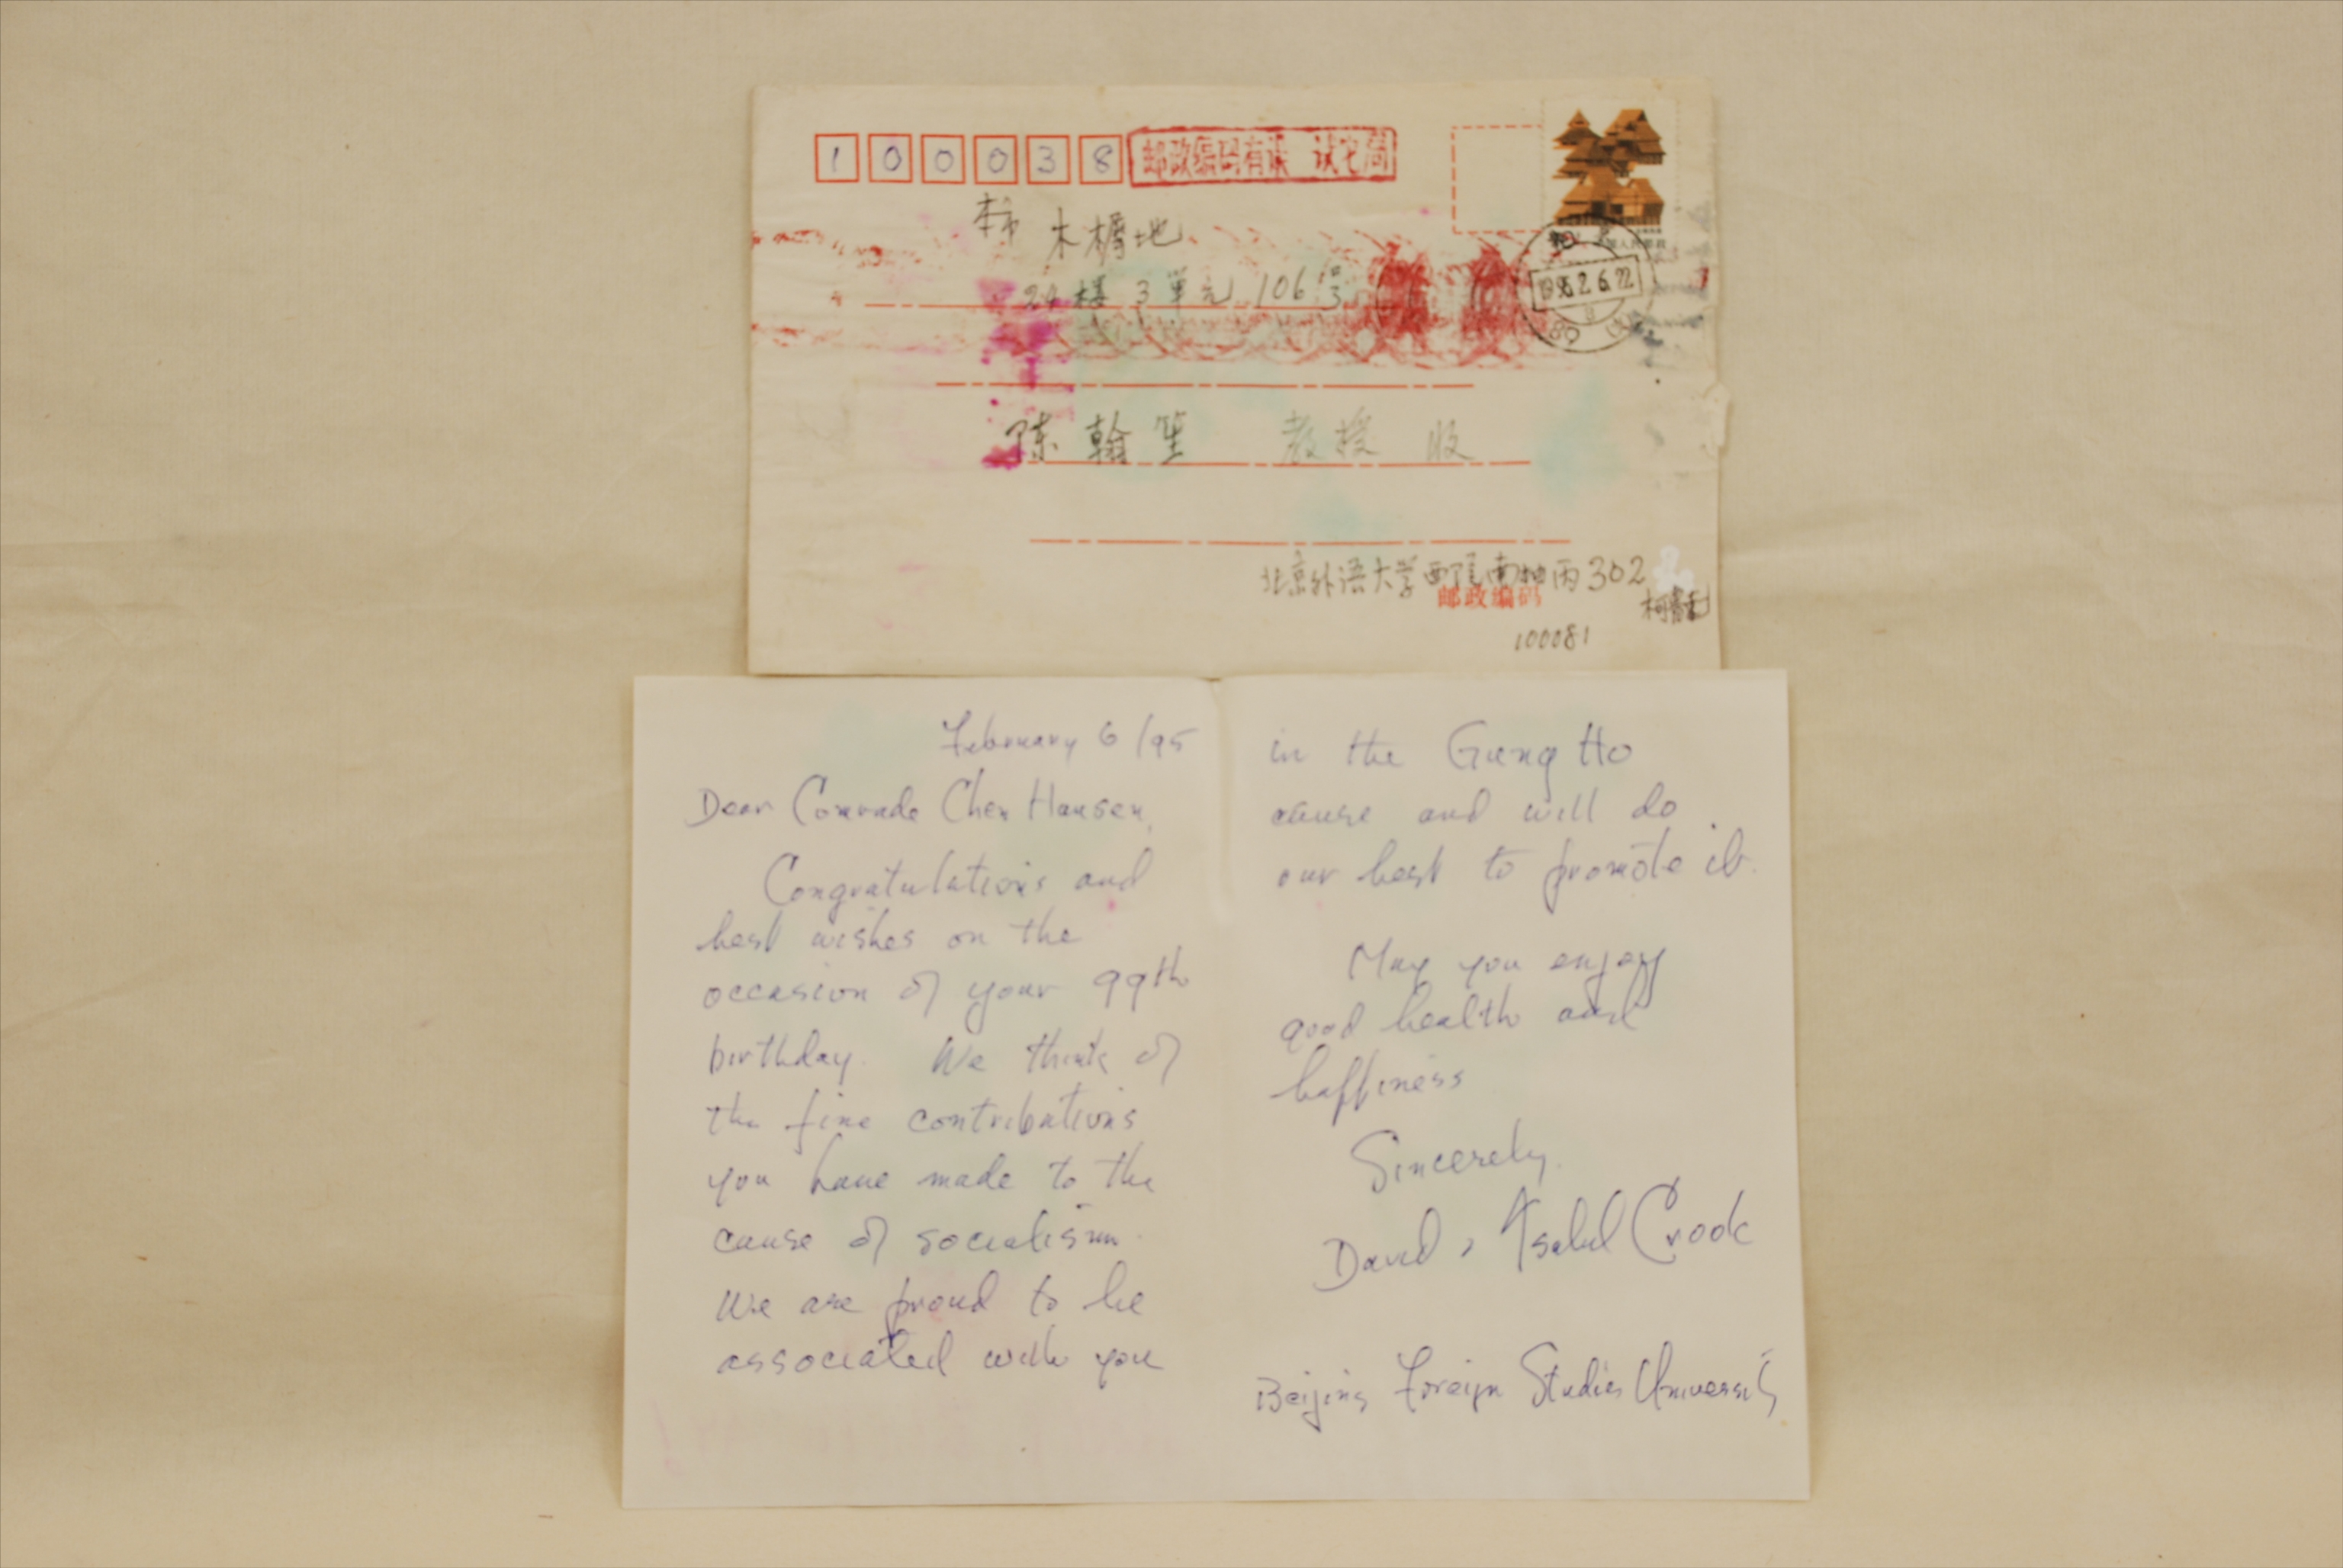 100038 邮政编码有误 试投
本市 木樨地
24楼 3单元 106号
1995.2.6.22
陈翰笙 教授 收
北京外语大学西院南 丙302
邮政编码
100081
February 6/95
Dear Comrade Chen Hansen,
Congratulations and
best wishes on the
occasion of your 99th
birthday. We think of
the fine contributions
you have made to the
cause of socialism.
We are proud to be
associated with you
in the Gung Ho
cause and will do
our best to promote it.
May you enjoy
good health and
happiness
Sincerely,
David, Isabel Crook
Beijing Foreign Studies University